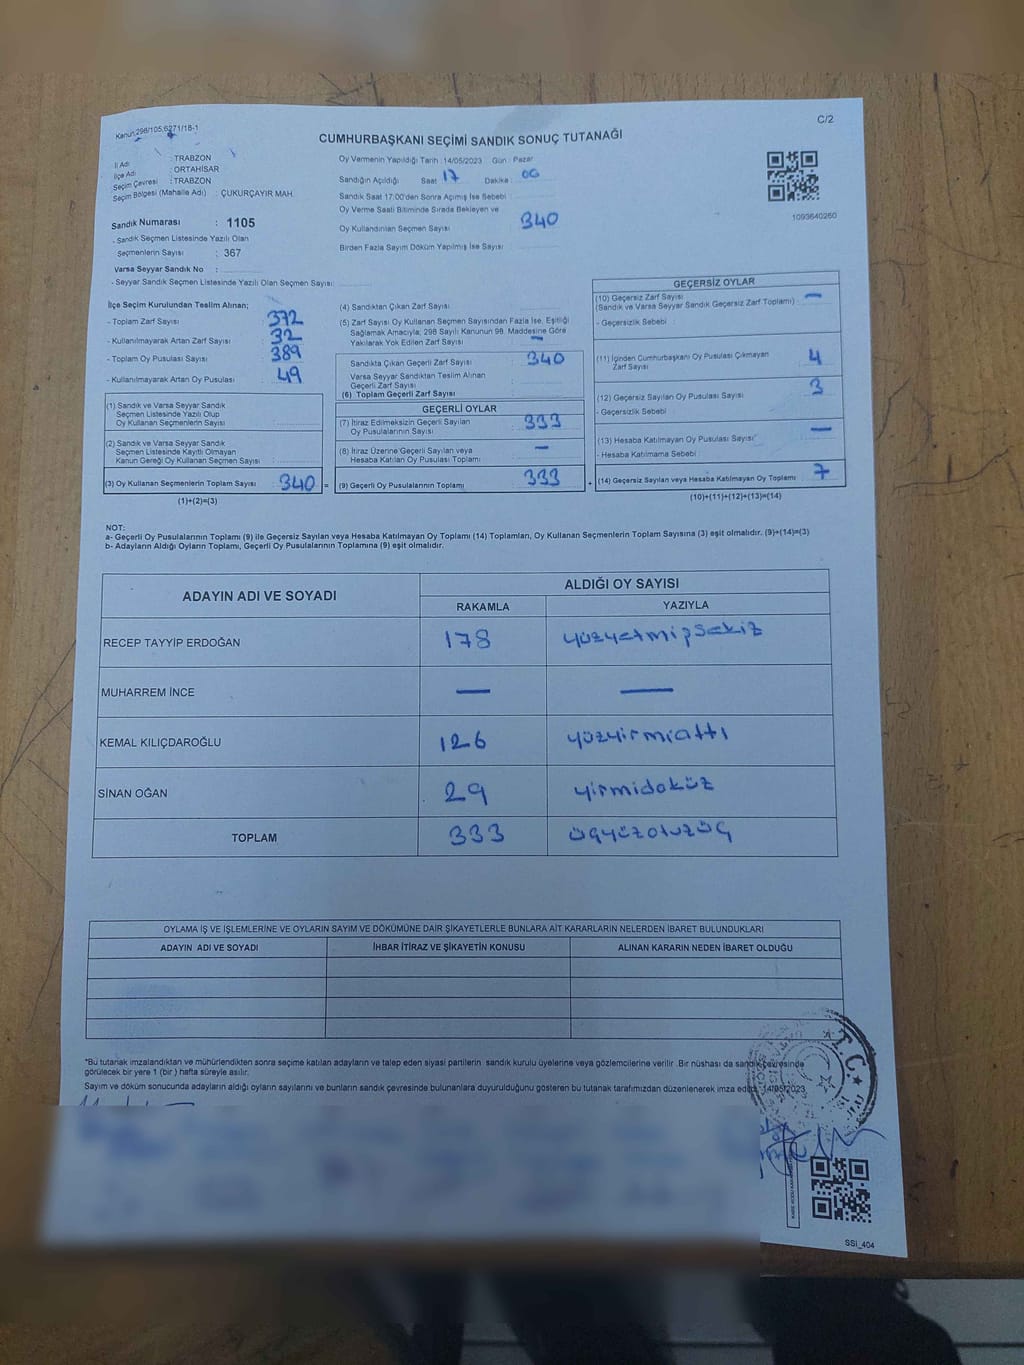 Kanun 298/105,6271/18-1
C/2
CUMHURBAŞKANI SEÇİMİ SANDIK SONUÇ TUTANAĞI
İl Adı : TRABZON
İlçe Adı : ORTAHİSAR
Seçim Çevresi : TRABZON
Seçim Bölgesi (Mahalle Adı) : ÇUKURÇAYIR MAH.
Sandık Numarası : 1105
- Sandık Seçmen Listesinde Yazılı Olan
Seçmenlerin Sayısı : 367
Varsa Seyyar Sandık No :
- Seyyar Sandık Seçmen Listesinde Yazılı Olan Seçmen Sayısı:
Oy Vermenin Yapıldığı Tarih : 14/05/2023 Gün : Pazar
Sandığın Açıldığı Saat 17 Dakika : 00
Sandık Saat 17:00'den Sonra Açımış İse Sebebi
Oy Verme Saati Bitiminde Sırada Bekleyen ve
Oy Kullandırılan Seçmen Sayısı 340
Birden Fazla Sayım Döküm Yapılmış İse Sayısı
1093640260
İlçe Seçim Kurulundan Teslim Alınan;
- Toplam Zarf Sayısı : 372
- Kullanılmayarak Artan Zarf Sayısı : 32
- Toplam Oy Pusulası Sayısı : 389
- Kullanılmayarak Artan Oy Pusulası : 49
(1) Sandık ve Varsa Seyyar Sandık
Seçmen Listesinde Yazılı Olup
Oy Kullanan Seçmenlerin Sayısı
(2) Sandık ve Varsa Seyyar Sandık
Seçmen Listesinde Kayıtlı Olmayan
Kanun Gereği Oy Kullanan Seçmen Sayısı
(3) Oy Kullanan Seçmenlerin Toplam Sayısı : 340 =
(1)+(2)=(3)
(4) Sandıktan Çıkan Zarf Sayısı
(5) Zarf Sayısı Oy Kullanan Seçmen Sayısından Fazla İse, Eşitliği
Sağlamak Amacıyla; 298 Sayılı Kanunun 98. Maddesine Göre
Yakılarak Yok Edilen Zarf Sayısı : —
Sandıkta Çıkan Geçerli Zarf Sayısı 340
Varsa Seyyar Sandıktan Teslim Alınan
Geçerli Zarf Sayısı
(6) Toplam Geçerli Zarf Sayısı
GEÇERLİ OYLAR
(7) İtiraz Edilmeksizin Geçerli Sayılan
Oy Pusulalarının Sayısı : 333
(8) İtiraz Üzerine Geçerli Sayılan veya
Hesaba Katılan Oy Pusulası Toplamı : —
(9) Geçerli Oy Pusulalarının Toplamı : 333 +
GEÇERSİZ OYLAR
(10) Geçersiz Zarf Sayısı
(Sandık ve Varsa Seyyar Sandık Geçersiz Zarf Toplamı) : —
- Geçersizlik Sebebi
(11) İçinden Cumhurbaşkanı Oy Pusulası Çıkmayan
Zarf Sayısı 4
(12) Geçersiz Sayılan Oy Pusulası Sayısı 3
- Geçersizlik Sebebi
(13) Hesaba Katılmayan Oy Pusulası Sayısı —
- Hesaba Katılmama Sebebi
(14) Geçersiz Sayılan veya Hesaba Katılmayan Oy Toplamı : 7
(10)+(11)+(12)+(13)=(14)
NOT:
a- Geçerli Oy Pusulalarının Toplamı (9) ile Geçersiz Sayılan veya Hesaba Katılmayan Oy Toplamı (14) Toplamları, Oy Kullanan Seçmenlerin Toplam Sayısına (3) eşit olmalıdır. (9)+(14)=(3)
b- Adayların Aldığı Oyların Toplamı, Geçerli Oy Pusulalarının Toplamına (9) eşit olmalıdır.
ADAYIN ADI VE SOYADI
ALDIĞI OY SAYISI
RAKAMLA YAZIYLA
RECEP TAYYİP ERDOĞAN 178 yüzyetmişsekiz
MUHARREM İNCE — —
KEMAL KILIÇDAROĞLU 126 yüzyirmialtı
SİNAN OĞAN 29 yirmidoküz
TOPLAM 333 üçyüzotuzüç
OYLAMA İŞ VE İŞLEMLERİNE VE OYLARIN SAYIM VE DÖKÜMÜNE DAİR ŞİKAYETLERLE BUNLARA AİT KARARLARIN NELERDEN İBARET BULUNDUKLARI
ADAYIN ADI VE SOYADI İHBAR İTİRAZ VE ŞİKAYETİN KONUSU ALINAN KARARIN NEDEN İBARET OLDUĞU
*Bu tutanak imzalandıktan ve mühürlendikten sonra seçime katılan adayların ve talep eden siyasi partilerin sandık kurulu üyelerine veya gözlemcilerine verilir. Bir nüshası da sandık çevresinde
görülecek bir yere 1 (bir ) hafta süreyle asılır.
Sayım ve döküm sonucunda adayların aldığı oyların sayılarını ve bunların sandık çevresinde bulunanlara duyurulduğunu gösteren bu tutanak tarafımızdan düzenlenerek imza edildi. 14/05/2023
T.C.
SSi_404